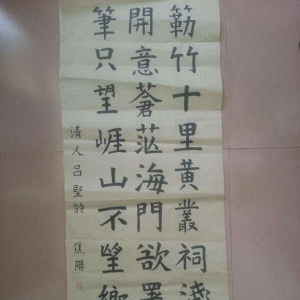 簕竹十里黃叢祠淺
開意蒼茫海門欲暑
筆只望崕山不望鄉
清人呂堅詩 焦陽